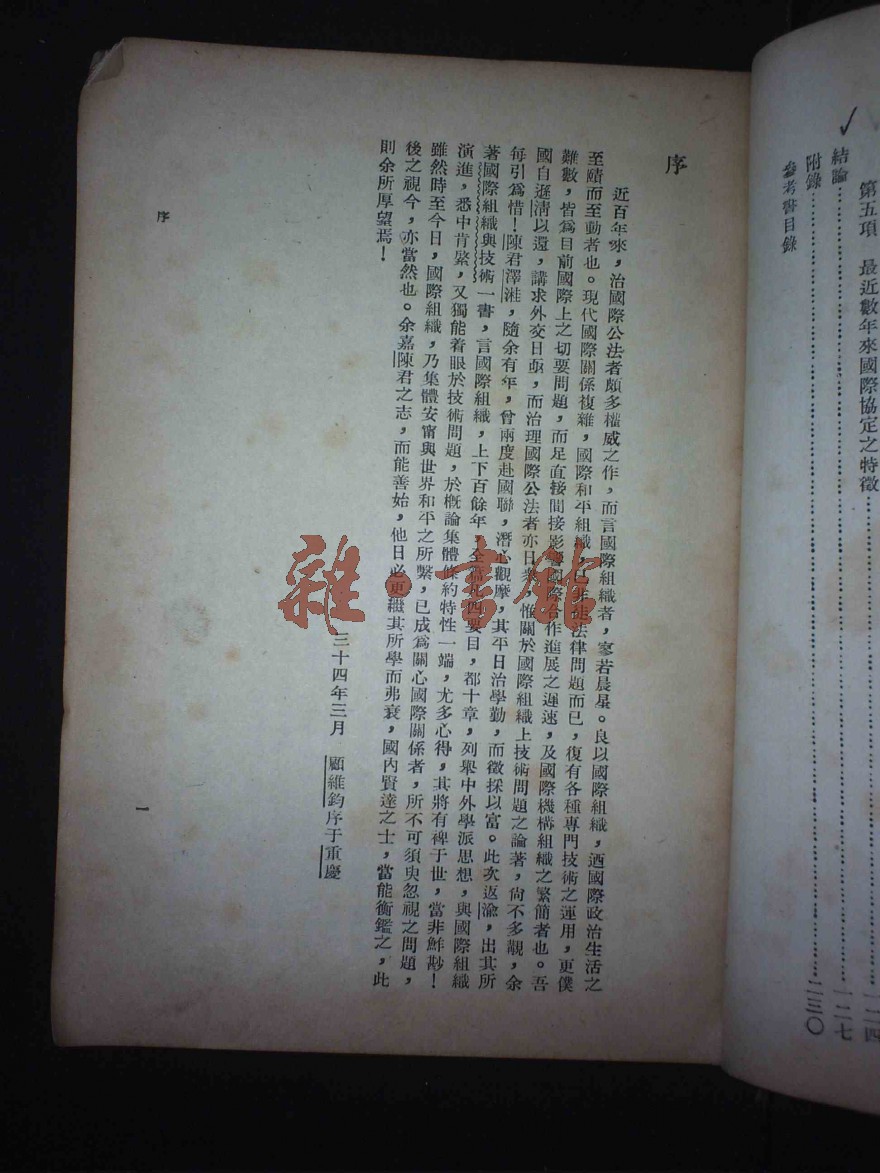 第五項　最近數年來國際協定之特徵……一二四
結論……一二七
附錄……一三〇
參考書目錄
序
近百年來，治國際公法者頗多權威之作，而言國際組織者，寥若晨星。良以國際組織，迺國際政治生活之
至賾而至動者也。現代國際關係複雜，國際和平組織，已非徒法律問題而已，復有各種專門技術之運用，更僕
難數，皆爲目前國際上之切要問題，而足直接間接影響國際合作進展之遲速，及國際機構組織之繁簡者也。吾
國自遜淸以還，講求外交日亟，而治理國際公法者亦日衆，惟關於國際組織上技術問題之論著，尙不多覯，余
每引爲惜！陳君澤湘，隨余有年，曾兩度赴國聯，潛心觀摩，其平日治學勤，而徵採以富。此次返渝，出其所
著國際組織與技術一書，言國際組織，上下百餘年，全書凡四要目，都十章，列舉中外學派思想，與國際組織
演進，悉中肯綮，又獨能着眼於技術問題，於槪論集體條約特性一端，尤多心得，其將有裨于世，當非鮮尠！
雖然時至今日，國際組織，乃集體安甯與世界和平之所繫，已成爲關心國際關係者，所不可須臾忽視之問題，
後之視今，亦當然也。余嘉陳君之志，而能善始，他日必更繼其所學而弗衰，國內賢達之士，當能衡鑑之，此
則余所厚望焉！
三十四年三月　顧維鈞序于重慶
序
一
雜·書館